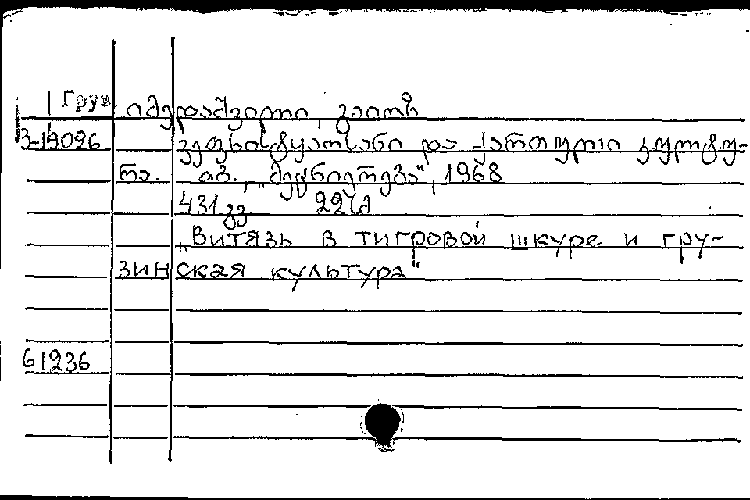 Груз იმედაშვილი, გაიოზ
3-19096 ვეფხისტყაოსანი და ქართული კულტუ-
რა. თბ., „მეცნიერება“, 1968
431 გვ. 22სმ
„Витязь в тигровой шкуре и гру-
зинская культура“
61236